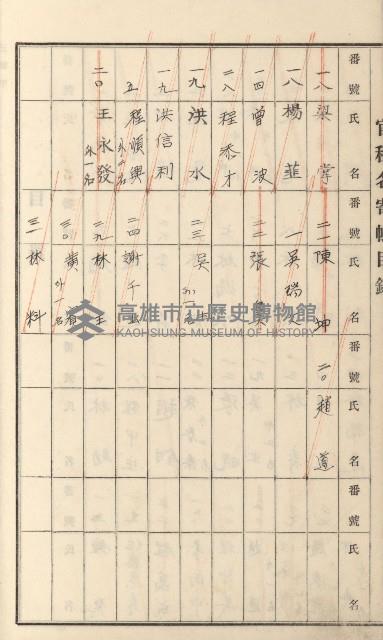 官租名寄帳目錄
番號 氏名 番號 氏名 番號 氏名 番號 氏名
一八 梁掌
二一 陳坤
二〇 趙
一八 楊韮
一 吳瑞
一四 曾波
二二 張
二八 程添才
一九 洪水
二三 吳
外一名
一九 洪信利
五 程順興
外 名
二四 謝
二〇 王永發
外一名
二九 林
三〇 黃
外一名
三一 林料
高雄市立歷史博物館
KAOHSIUNG MUSEUM OF HISTORY